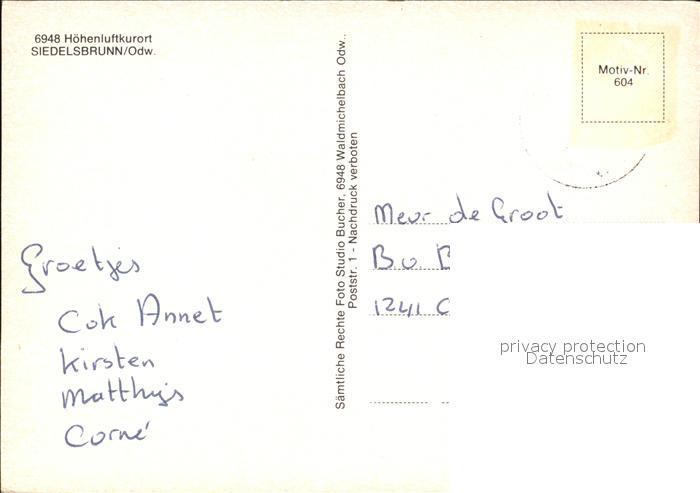 6948 Höhenluftkurort
SIEDELSBRUNN/Odw.
Groetjes
Cok Annet
Kirsten
Matthijs
Corné
Sämtliche Rechte Foto Studio Bucher, 6948 Waldmichelbach Odw.,
Poststr. 1 - Nachdruck verboten
Motiv-Nr.
604
Mevr de Groot
1241
privacy protection
Datenschutz